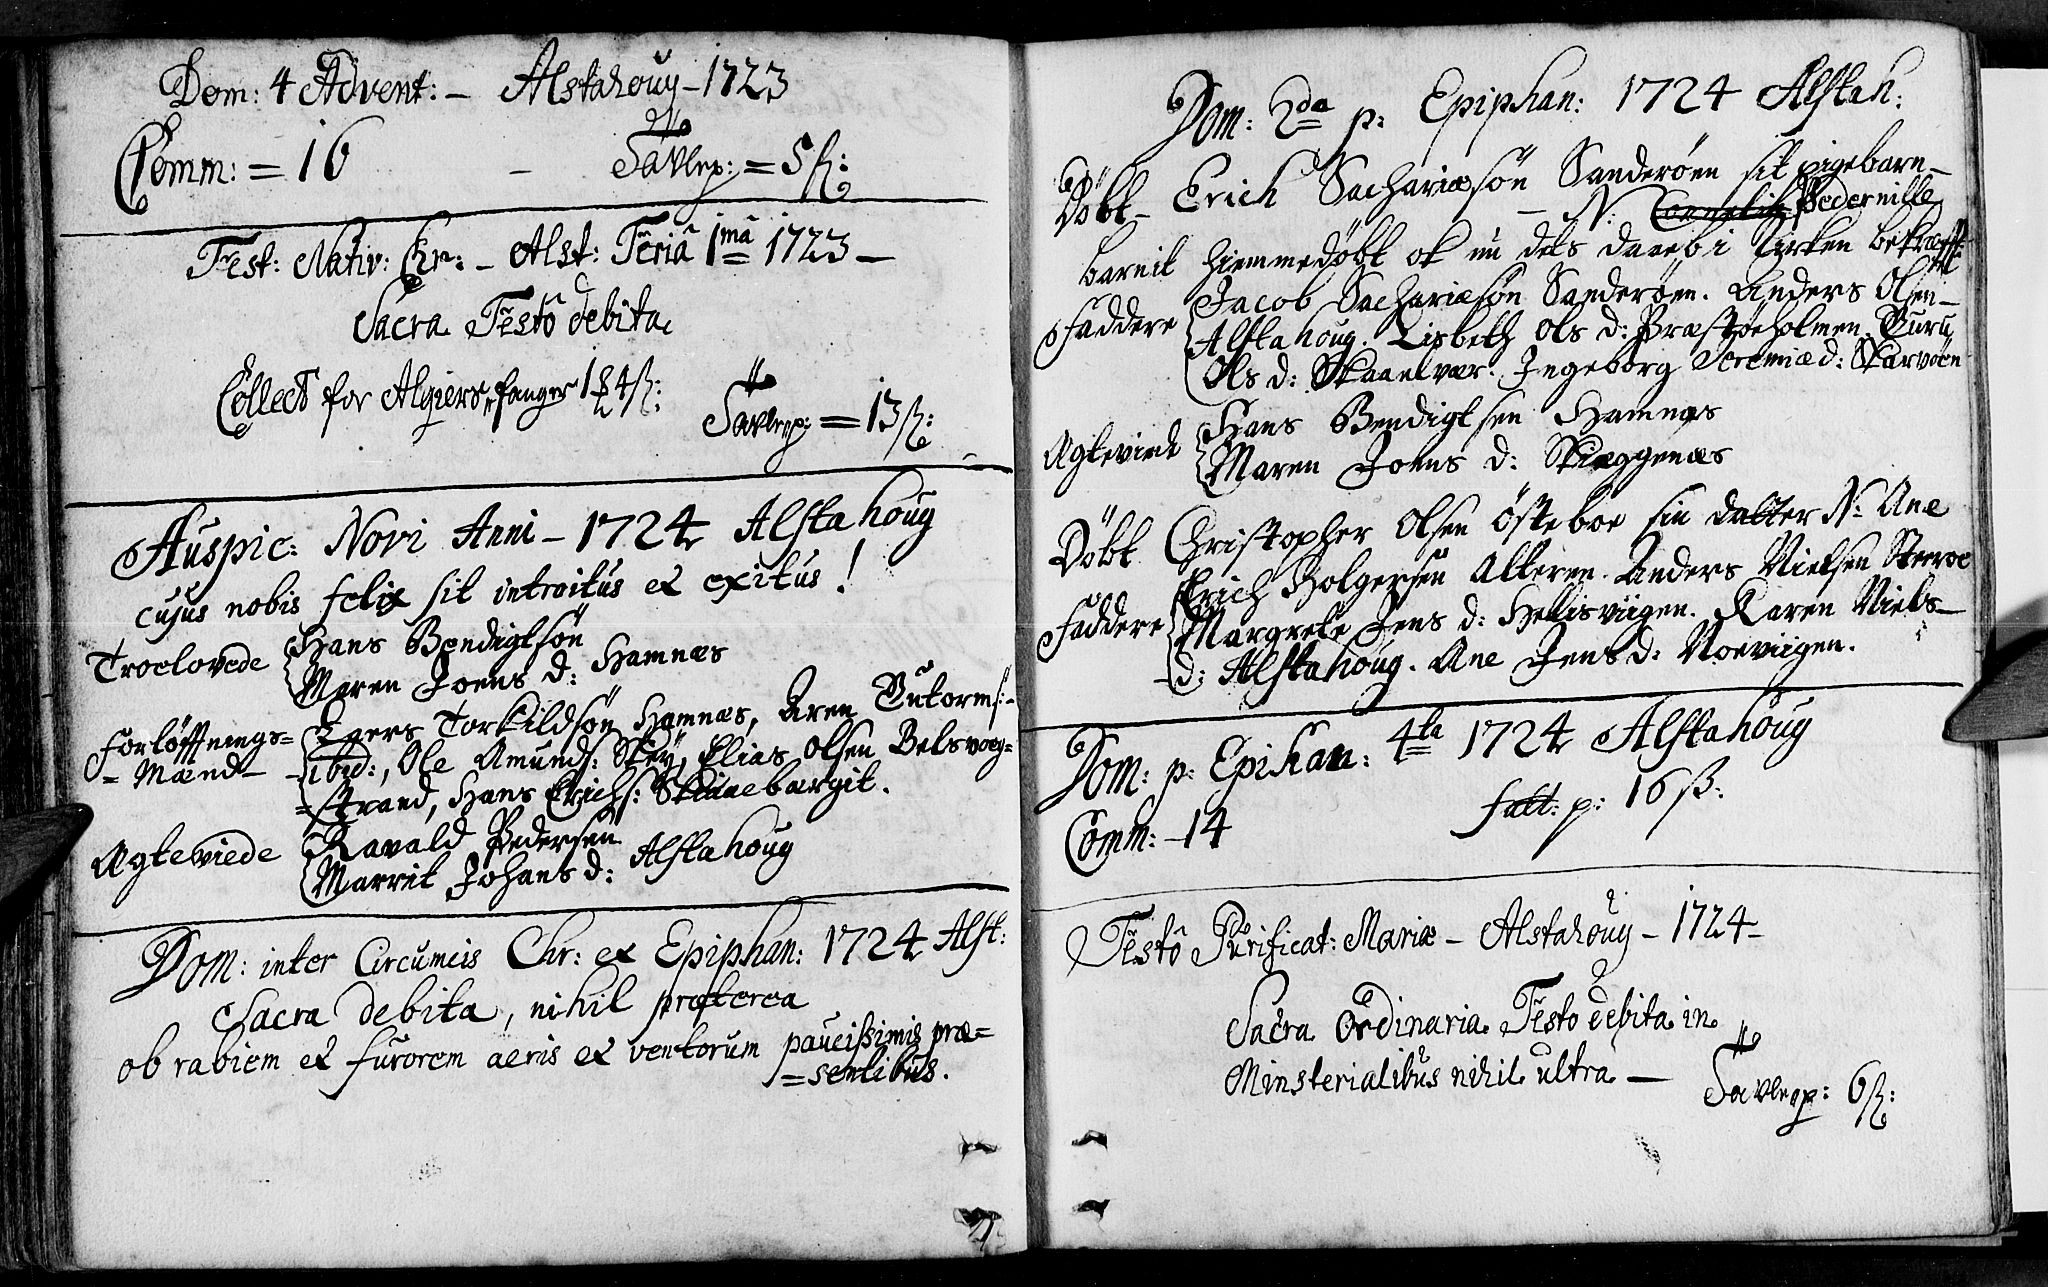 Dom: 4 Advent: – Alstahoug – 1723
Comm: = 16 – Tavlep: = 5 ß:
Fest: Nativ: Chr: – Alst: Feriâ 1mâ 1723 –
Sacra Festô debita
Collect for Algiers fanger 1 4 ß:
Tavlep: = 13 ß:
Auspic: Novi Anni – 1724 Alstahoug
cujus nobis felix sit introitus et exitus!
Troelovede Hans Bendigtsøn
Maren Joens d: Hamnæs
Forløffnings= Egers Torkildsøn Hamnæs, Aren Gutorms:
= Mænd – ibid:, Ole Amunds: Skey, Elias Olsen Belsvog=
=strand, Hans Erichs:
Ægteviede Ravald Pedersen
Marrit Johans d: Alstahoug
Dom: inter Circumcis Chr: et Epiphan: 1724 Alst:
Sacra debita, nihil præterea
ob rabiem et furorem aeris et ventorum paucissimis præ=
=sentibus.
Dom: 2da p: Epiphan: 1724 Alstah:
Döbt – Erich Sachariæsön Sanderöen sit pigebarn –
– N: Cornelia Pedernille
barnit hiemmedöbt ok nu dets daab i Kirken bekræfft:
Faddere Jacob Sachariæsön Sanderöen. Anders Olsen –
Alstahoug. Lisbeth Ols d: Præstöeholmen. Guru
Ols d: Skaaelvær. Ingeborg Jeremiæ d: Skarvöen
Ægteviedt Hans Bendigtsen Hamnæs
Maren Joens d: Skieggenæs
Döbt Christopher Olsen Östeboe sin datter N: Ane
Erich Holgersen Alteren. Anders Nielsen Sterroe
Faddere Margrete Jens d: Hellisviigen. Karen Niels –
– d: Alstahoug. Ane Jens d: Noeviigen.
Dom: p: Epihan: 4ta 1724 Alstahoug
fatt: p: 16 ß:
Comm: – 14
Festô Purificat: Mariæ – Alstahoug – 1724 –
Sacra Ordinaria Festo debita in
Minsterialibus nihil ultra –
Tavlep: 6 ß: